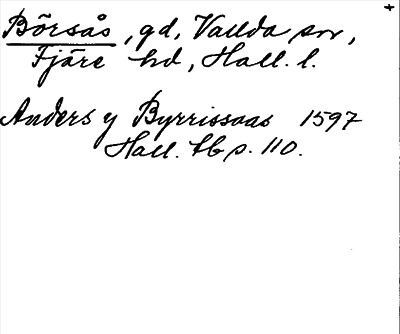 Börsås, gd, Vallda sn,
Fjäre hd, Hall. l.
Anders y Byrrissaas 1597
Hall. tb p. 110.